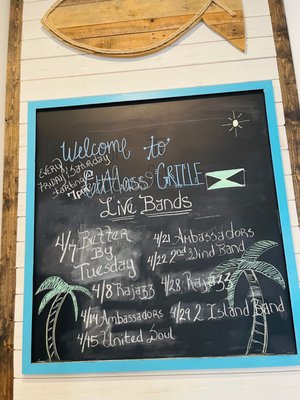 Welcome to
EVERY
Friday/Saturday
Starting @
7pm
Cuttlass GRILLE
Live Bands
4/7 Better
By
Tuesday
4/8 Rajazz
4/14 Ambassadors
4/15 United Soul
4/21 Ambassadors
4/22 2nd Wind Band
4/28 Rajazz
4/29 2 Island Band